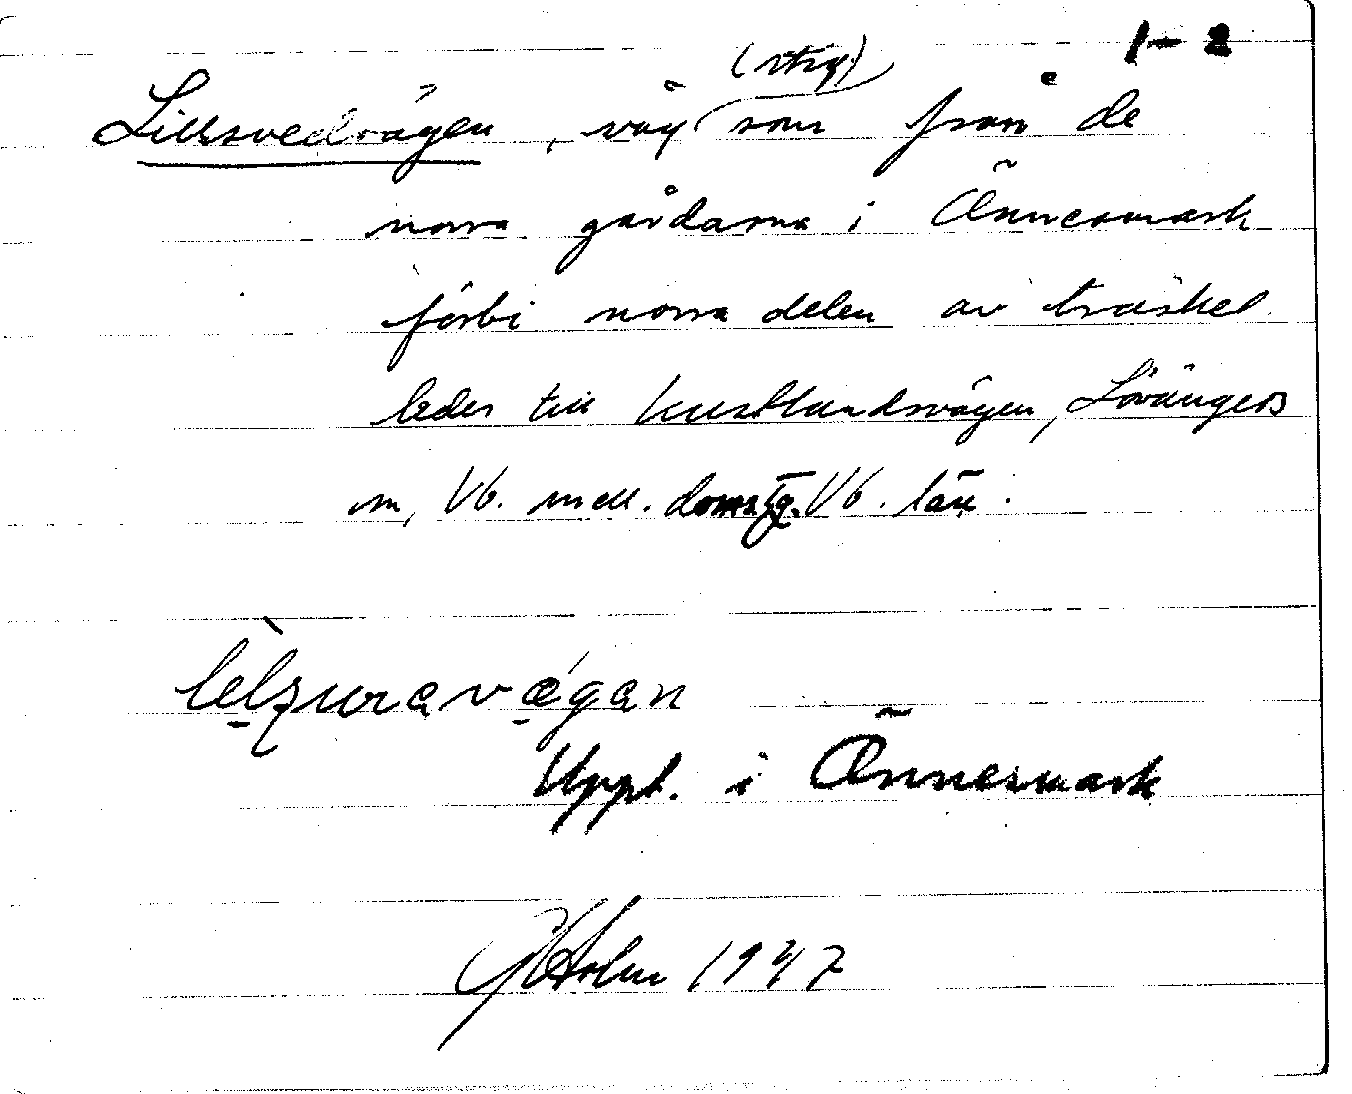 1-2
Lillsvedvägen, väg (stig) som från de
norra gårdarna i Önnesmark
förbi norra delen av träsket
leder till kustlandsvägen, Lövångers
sn, Vb. mell. doms.tg. Vb. län.
Uppt. i Önnesmark
Holm 1947